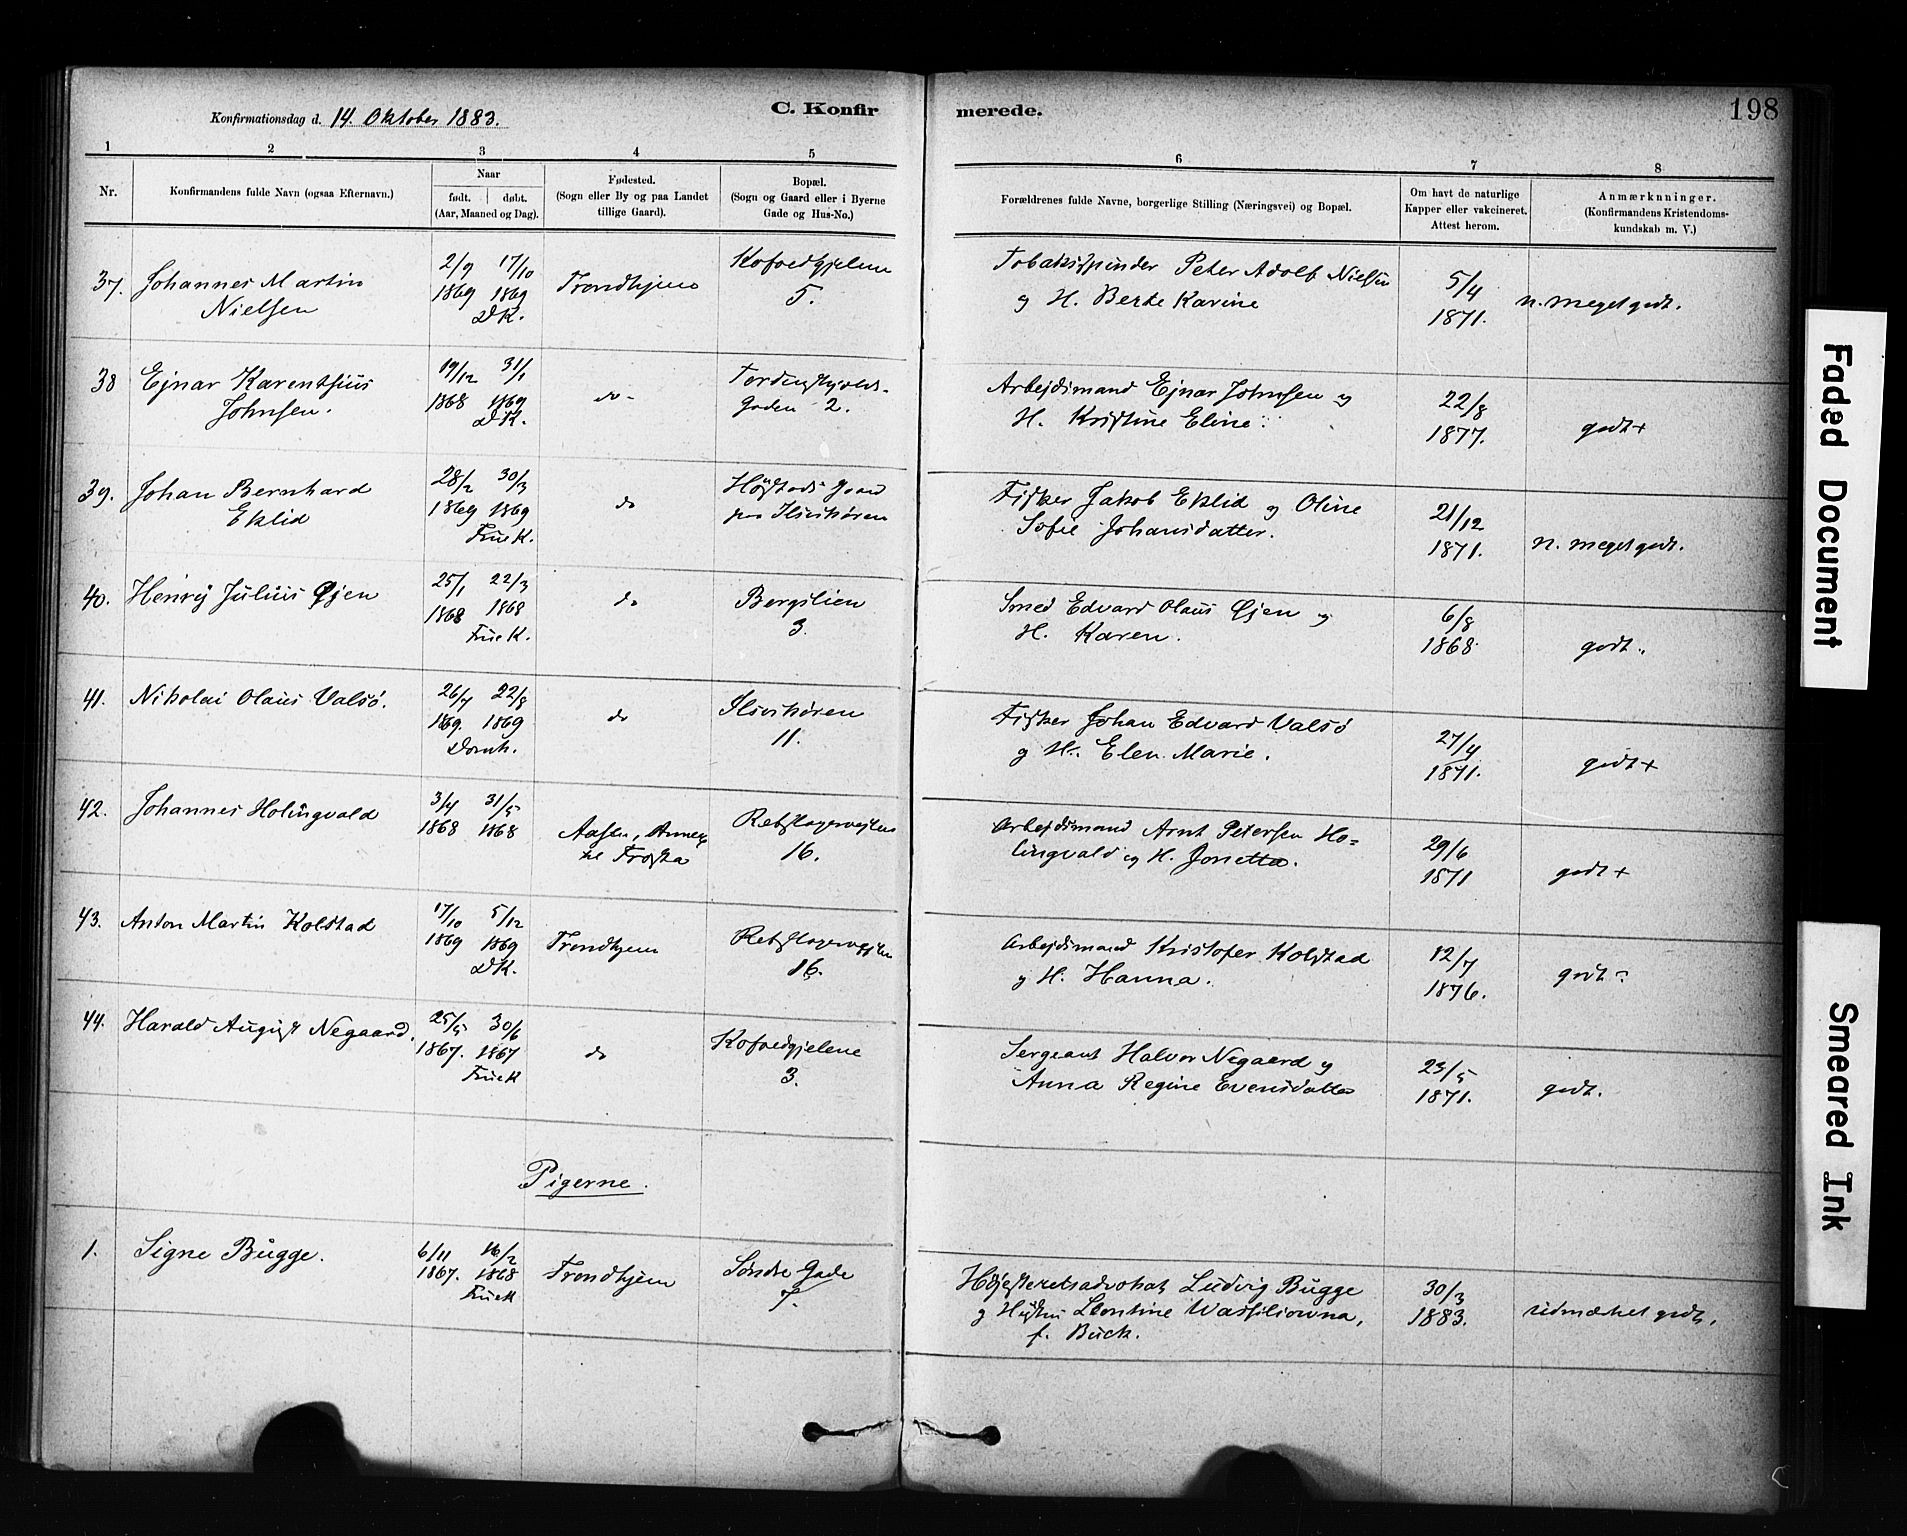 Konfirmationsdag d. 14. Oktober 1883.
C. Konfir
merede.
198
1 2 3 4 5 6 7 8
Nr.
Konfirmandens fulde Navn (ogsaa Efternavn.)
Naar
født. døbt.
(Aar, Maaned og Dag).
Fødested.
(Sogn eller By og paa Landet
tillige Gaard).
Bopæl.
(Sogn og Gaard eller i Byerne
Gade og Hus-No.)
Forældrenes fulde Navne, borgerlige Stilling (Næringsvei) og Bopæl.
Om havt de naturlige
Kapper eller vakcineret.
Attest herom.
Anmærknninger.
(Konfirmandens Kristendoms-
kundskab m. V.)
37. Johannes Martin
Nielsen
2/9 17/10
1869 1869
DK.
Trondhjem
5.
Tobakspinder Peter Adolf Nielsen
og H. Berte Karine
5/4
1871.
n. meget godt.
38 Ejnar Karentsius
Johnsen.
19/12 31/1
1868 1869
DK.
do-
Tordenskjolds-
Gaden 2.
Arbejdsmand Ejnar Johnsen og
H. Kristine Eline.
22/8
1877.
godt+
39. Johan Bernhard
Eklid
28/2 30/3
1869 1869
Frue K.
do
Høgstads Gaard
paa Ilsvikøren
Fisker Jakob Eklid og Oline
Sofie Johansdatter.
21/12
1871.
n. meget godt.
40. Henrij Julius Øjen
25/1 22/3
1868 1868
Frue K.
do
Bergslien
3.
Smed Edvard Olaus Øjen og
H. Karen.
6/8
1868
godt.
41. Nikolai Olaus Valsø.
26/7 22/8
1869. 1869
Domk.
do
Ilsvikøren
11.
Fisker Johan Edvard Valsø
og H. Elen Marie.
27/4
1871.
godt+
42. Johannes Holingvald
3/4 31/5
1868 1868
Aasen, Annex
til Frosta
Rebslagervejten
16.
Arbejdsmand Arnt Petersen Ho=
lingvald og H. Jonetta.
29/6
1871
godt+
43. Anton Martin Kolstad
17/10 5/12
1869 1869
DK.
Trondhjem
Rebslagervejten
16.
Arbejdsmand Kristofer Kolstad
og H. Hanna.
12/7
1876.
godt-
44. Harald August Negaard.
25/5 30/6
1867. 1867
Frue K
do
3.
Sergeant Halvor Negaard og
Anna Regine Evensdatter
23/5
1871.
godt.
Pigerne.
1. Signe Bugge.
6/11 16/2
1867. 1868
Frue K
Trondhjem
Søndre Gade
7.
Højesteretsadvokat Ludvig Bugge
og Hustru Leontine Wassiliowna,
f. Buck.
30/3
1883.
udmærket godt.
Faded Document
Smeared Ink